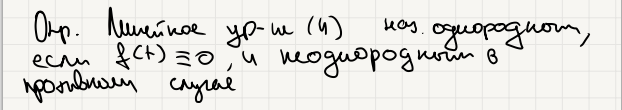 Опр. Линейное ур-ие (4) наз. однородным,
если f(t) ≡ 0, и неоднородным в
противном случае